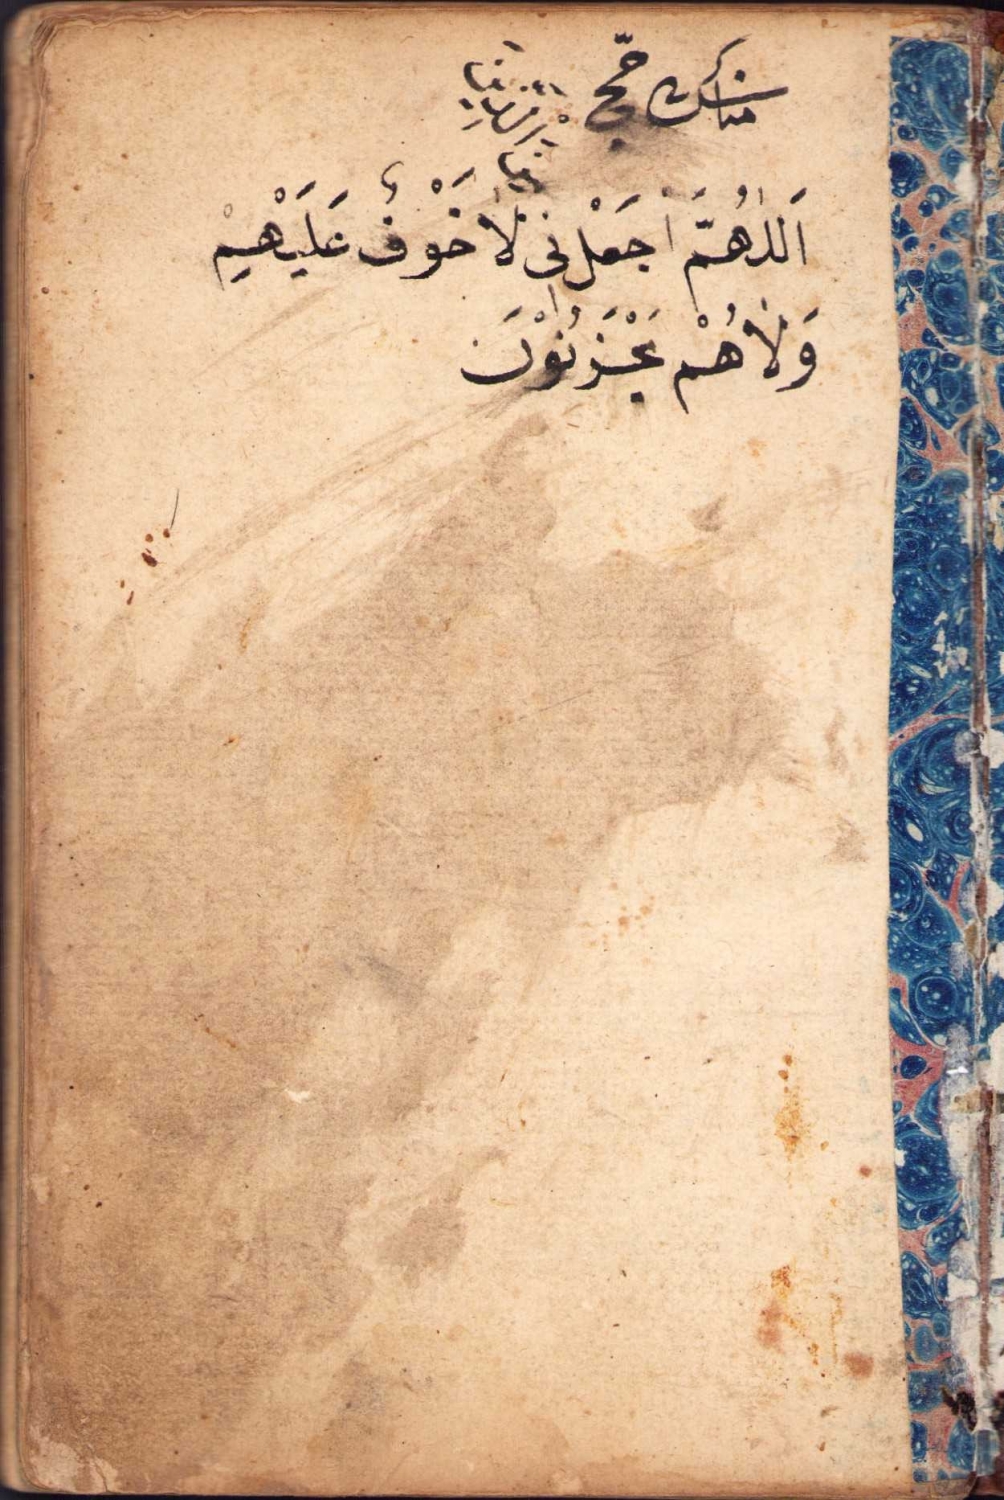 مناسك حج
اَللّٰهُمَّ اجعَلْنى لٰا خَوْفٌ عَلَيْهِمْ
وَلٰا هُمْ يَحْزَنُوْنَ